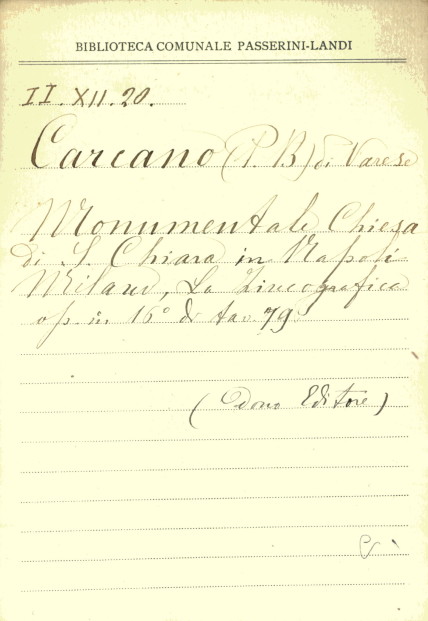 BIBLIOTECA COMUNALE PASSERINI-LANDI
II. XII. 20.
Carcano (P. B) di Varese
Monumentale Chiesa
di S. Chiara in Napoli
Milano, La Zincografica
op. in 16° di tav. 79
(dono Editore)